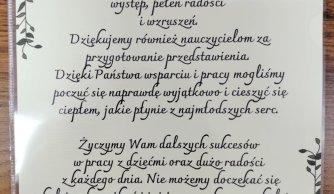 występ, pełen radości
i wzruszeń.
Dziękujemy również nauczycielom za
przygotowanie przedstawienia.
Dzięki Państwa wsparciu i pracy mogliśmy
poczuć się naprawdę wyjątkowo i cieszyć się
ciepłem, jakie płynie z najmłodszych serc.
Życzymy Wam dalszych sukcesów
w pracy z dziećmi oraz dużo radości
z każdego dnia. Nie możemy doczekać się